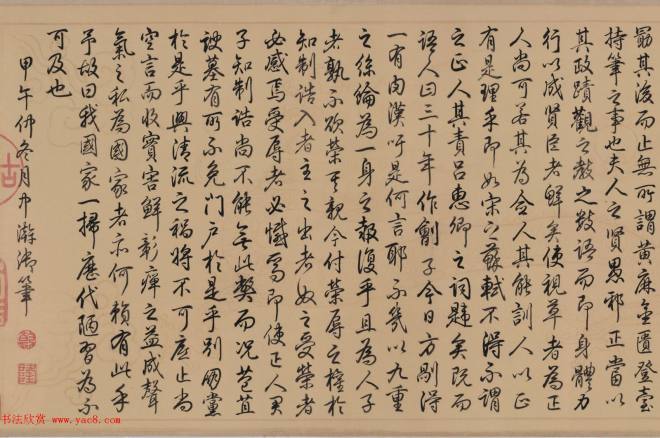 蒭其後而止無所謂黃麻金匱登臺
持筆之事也夫人之賢愚邪正當以
其政蹟觀之教之數語而即身體力
行以成賢臣者鮮矣使視草者為正
人尚可若其為僉人其能訓人以正
有是理乎即如宋之蘇軾不得不謂
之正人其責呂惠卿之詞韙矣既而
語人曰三十年作劊子今日方剮得
一有肉漢吁是何言耶不幾以九重
之絲綸為一身之報復乎且為人子
者孰不欲榮其親今付榮辱之權於
知制誥入者主之出者奴之受榮者
必感焉受辱者必憾焉即使正人君
子知制誥尚不能無此獘而況苞苴
諛墓有所不免門戶於是乎別朋黨
於是乎興清流之禍將不可底止尚
空言而收實害鮮彰癉之益成聲
氣之私為國家者亦何賴有此乎
予故曰我國家一掃歷代陋習為不
可及也
甲午仲冬月中澣御筆
乾
隆
书法欣赏 www.yac8.com